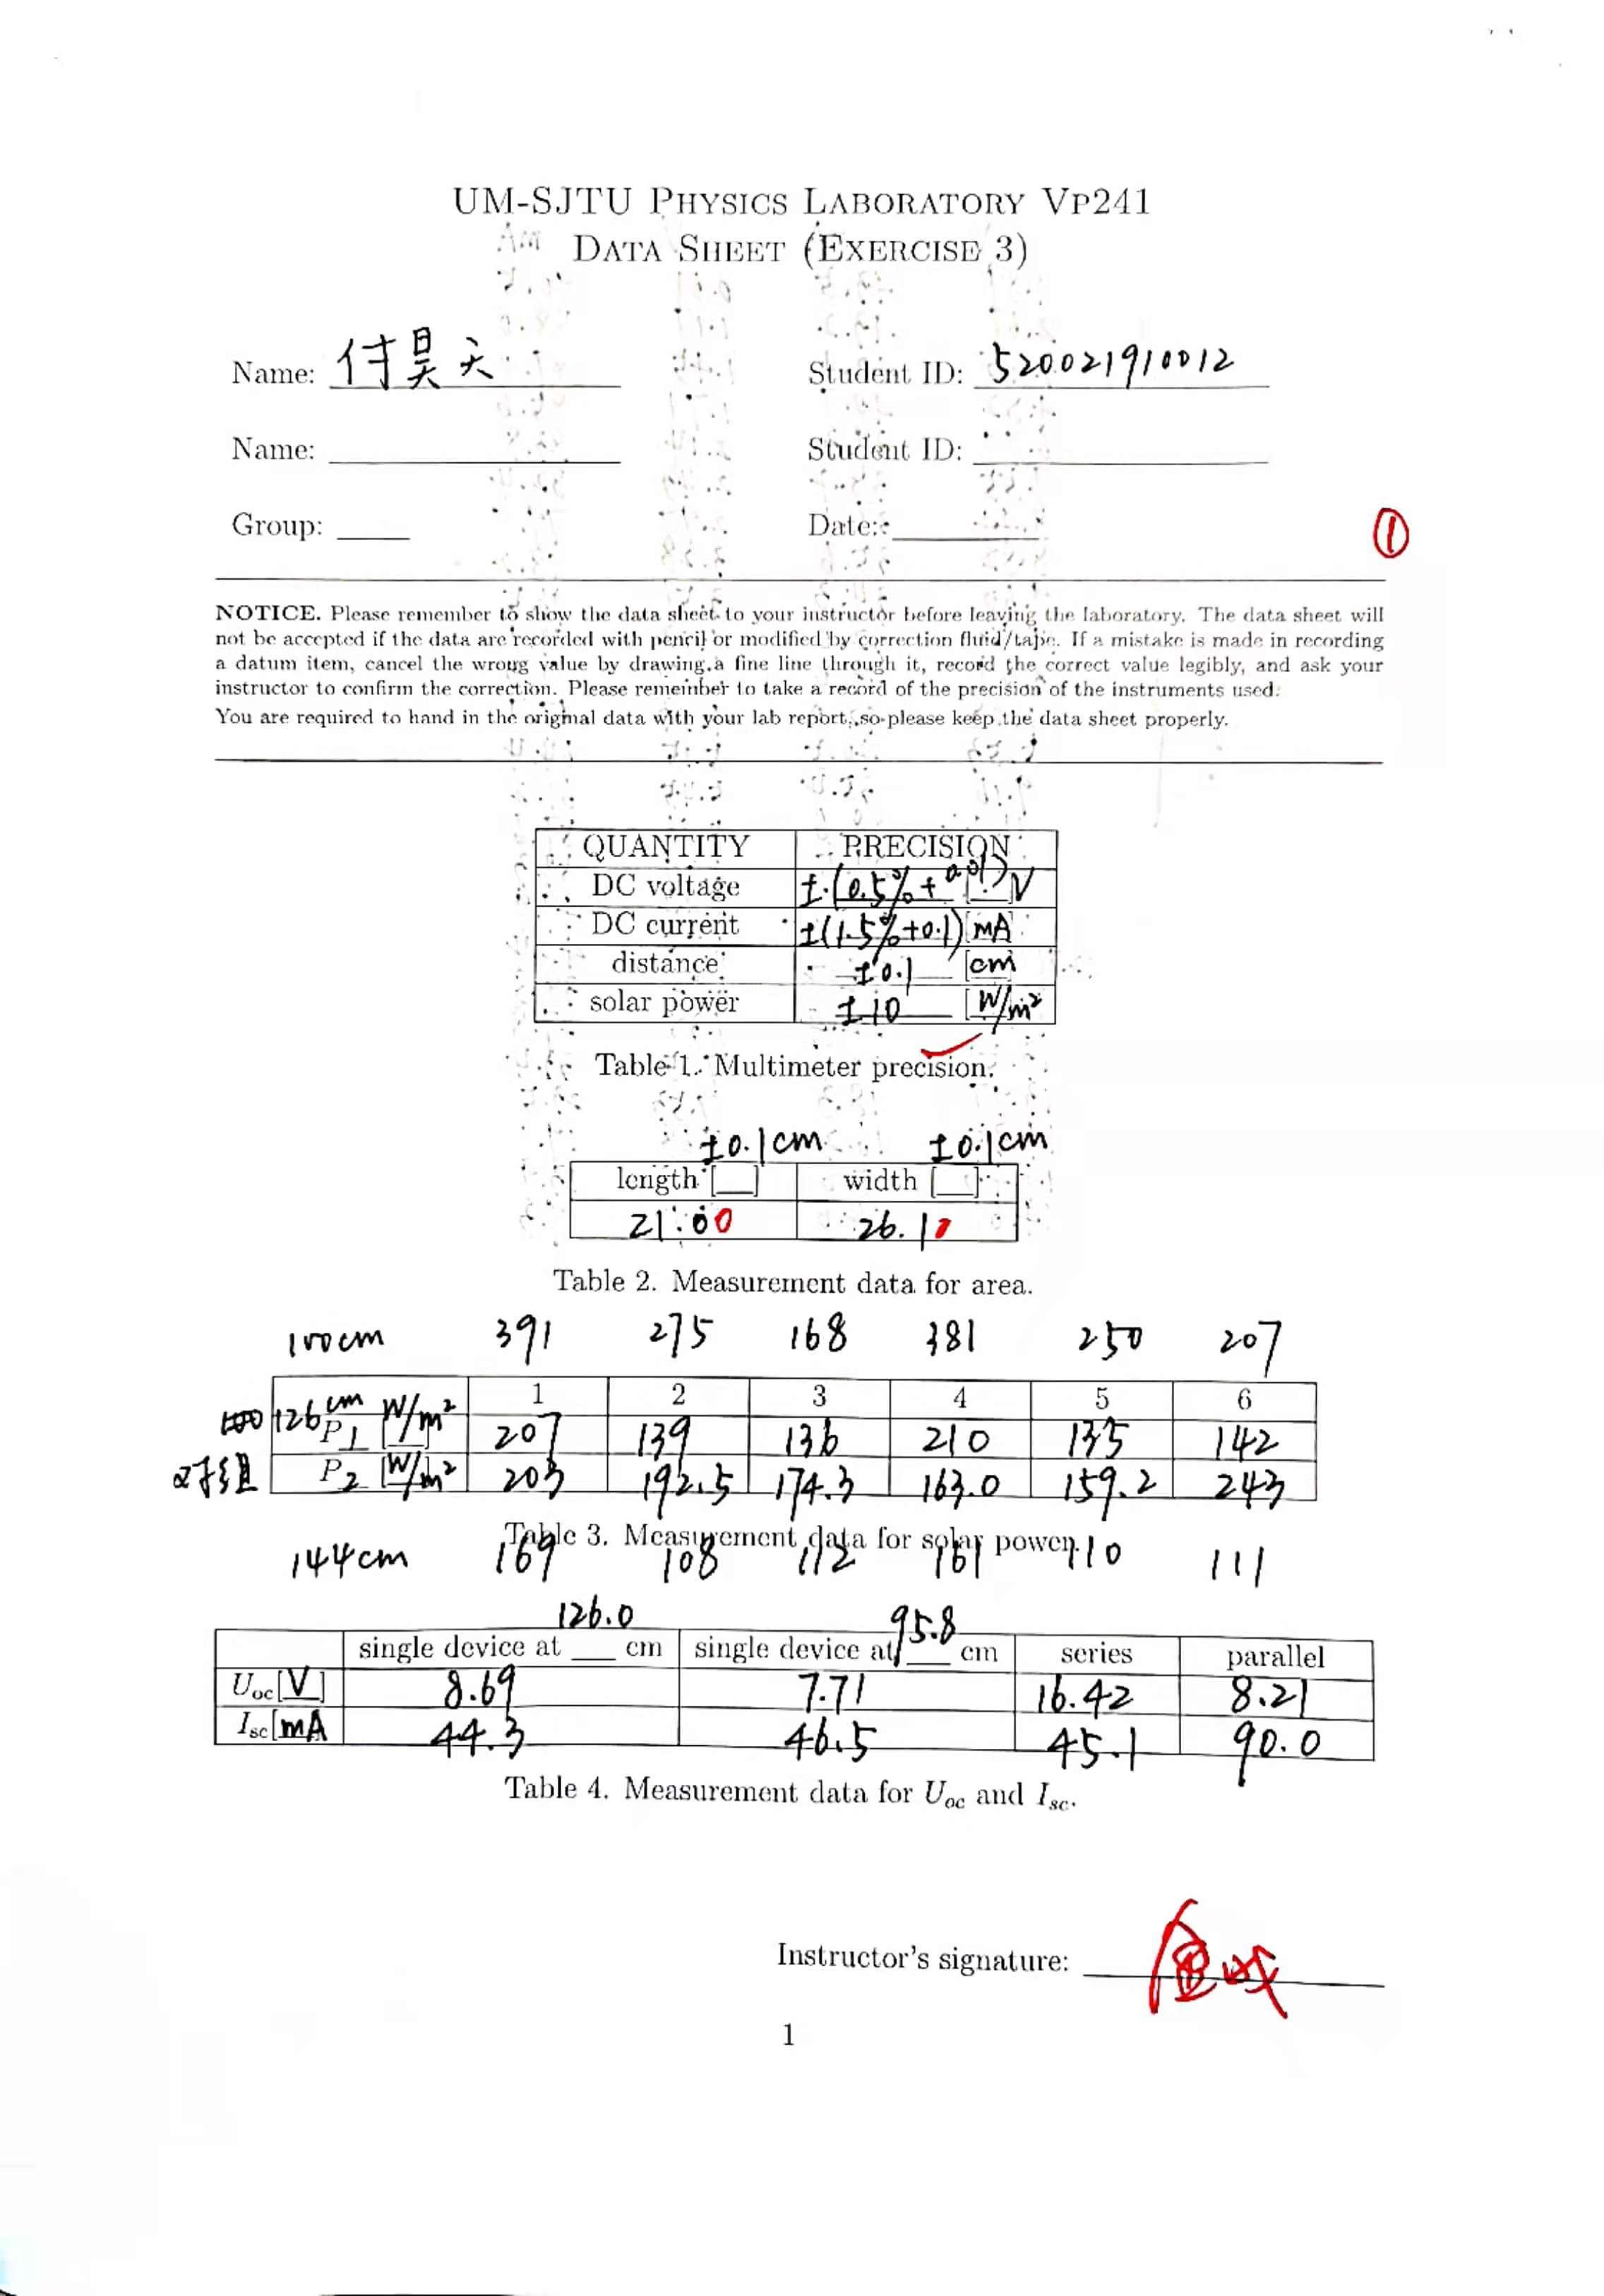 UM-SJTU PHYSICS LABORATORY VP241
DATA SHEET (EXERCISE 3)
Name: 付昊天 Student ID: 520021910012
Name: Student ID:
Group: Date:
①
NOTICE. Please remember to show the data sheet to your instructor before leaving the laboratory. The data sheet will
not be accepted if the data are recorded with pencil or modified by correction fluid/tape. If a mistake is made in recording
a datum item, cancel the wrong value by drawing a fine line through it, record the correct value legibly, and ask your
instructor to confirm the correction. Please remember to take a record of the precision of the instruments used.
You are required to hand in the original data with your lab report, so please keep the data sheet properly.
QUANTITY PRECISION
DC voltage ±(0.5%+0.01)[V
DC current ±(1.5%+0.1)[mA
distance ±0.1 [cm
solar power ±10 [W/m²
Table 1. Multimeter precision.
±0.1cm ±0.1cm
length [ ] width [ ]
21.00 26.10
Table 2. Measurement data for area.
100cm 391 275 168 381 250 207
1 2 3 4 5 6
126cm P1 [W/m² 207 139 136 210 135 142
对组 P2 [W/m² 203 192.5 174.3 163.0 159.2 243
Table 3. Measurement data for solar power.
144cm 169 108 112 161 110 111
126.0 95.8
single device at ___ cm single device at ___ cm series parallel
Uoc[V] 8.69 7.71 16.42 8.21
Isc[mA 44.3 46.5 45.1 90.0
Table 4. Measurement data for Uoc and Isc.
Instructor's signature:
1